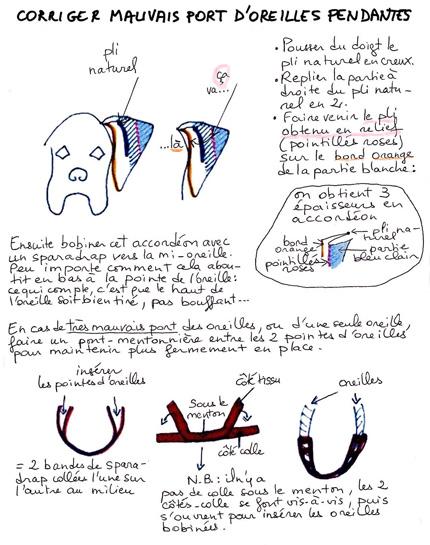 CORRIGER MAUVAIS PORT D'OREILLES PENDANTES
pli
naturel
ça
va...
...là
• Pousser du doigt le
pli naturel en creux.
• Replier la partie à
droite du pli natu-
rel en 2.
• Faire venir le pli
obtenu en relief
(pointillés roses)
sur le bord orange
de la partie blanche :
on obtient 3
épaisseurs en
accordéon
bord
orange
pointillés
roses
pli na-
turel
partie
bleu clair
Ensuite bobiner cet accordéon avec
un sparadrap vers la mi-oreille.
Peu importe comment cela abou-
tit en bas à la pointe de l'oreille :
ce qui compte, c'est que le haut de
l'oreille soit bien tiré, pas bouffant...
En cas de très mauvais port des oreilles, ou d'une seule oreille,
faire un pont-mentonnière entre les 2 pointes d'oreilles
pour maintenir plus fermement en place.
insérer
les pointes d'oreilles
= 2 bandes de spara-
drap collées l'une sur
l'autre au milieu
Sous le
menton
côté tissu
côté colle
oreilles
N.B. : il n'y a
pas de colle sous le menton, les 2
côtés-colle se font vis-à-vis, puis
s'ouvrent pour insérer les oreilles
bobinées.